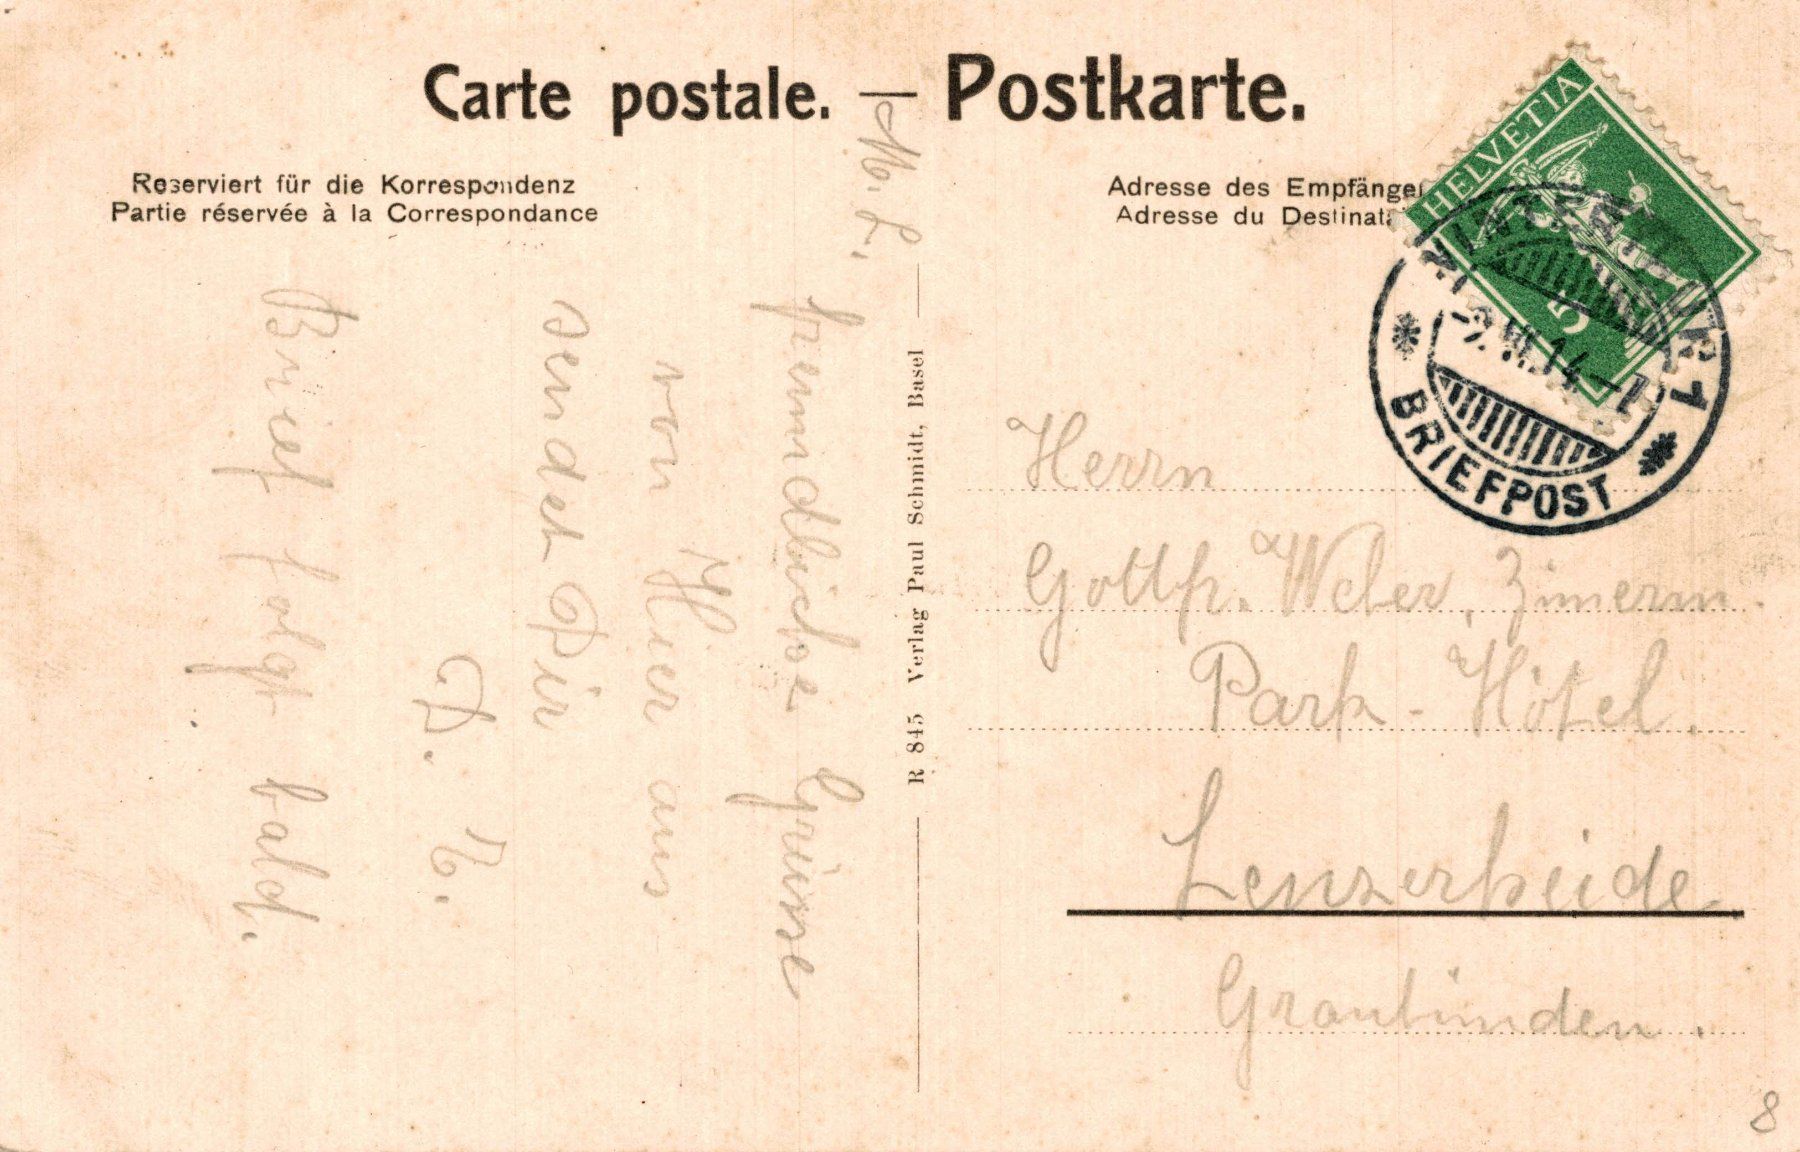 Carte postale. — Postkarte.
Reserviert für die Korrespondenz
Partie réservée à la Correspondance
Adresse des Empfänger
Adresse du Destinata
HELVETIA
5
WINTERTHUR 1
-2.VII.14-
BRIEFPOST
M. L.
freundliche Grüsse
von Hier aus
sendet Dir
B.
Brief folgt bald.
R 845 Verlag Paul Schmidt, Basel
Herrn
Gottfr. Weber, Zimerm.
Park-Hôtel.
Lenzerheide
Graubünden.
8